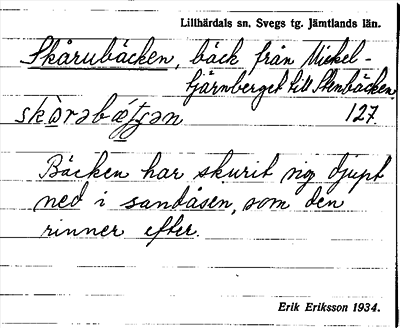 Lillhärdals sn. Svegs tg. Jämtlands län.
Skårubäcken, bäck från Mickel-
tjärnberget till Stenbäcken.
127.
Bäcken har skurit sig djupt
ned i sandåsen, som den
rinner efter.
Erik Eriksson 1934.